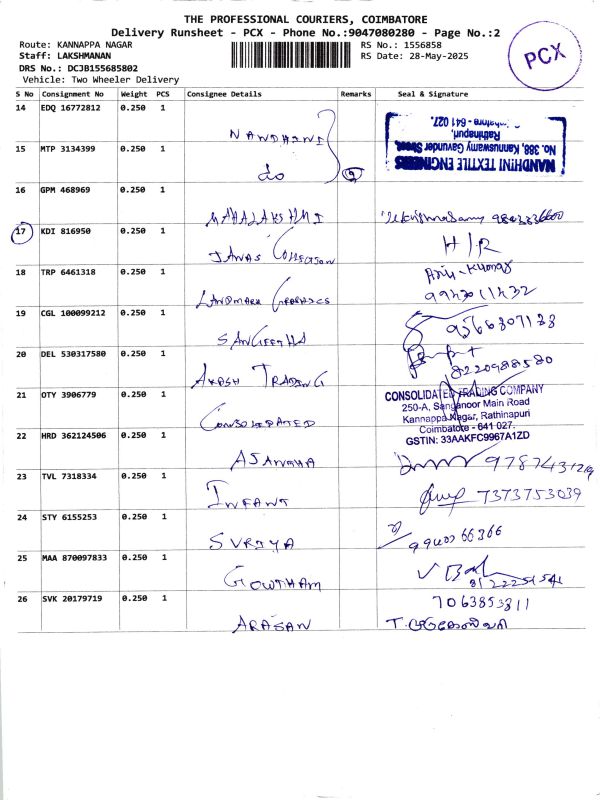 THE PROFESSIONAL COURIERS, COIMBATORE
Delivery Runsheet - PCX - Phone No.:9047080280 - Page No.:2
Route: KANNAPPA NAGAR
RS No.: 1556858
Staff: LAKSHMANAN
RS Date: 28-May-2025
DRS No.: DCJB155685802
Vehicle: Two Wheeler Delivery
PCX
S No Consignment No Weight PCS Consignee Details Remarks Seal & Signature
14 EDQ 16772812 0.250 1 NANDHINI
NANDHINI TEXTILE ENGINEERS
No. 388, Kannuswamy Gavunder Street,
Rathinapuri,
641 027.
15 MTP 3134399 0.250 1 do
16 GPM 468969 0.250 1 MAHALAKSHMI
17 KDI 816950 0.250 1 JANAS H/R
18 TRP 6461318 0.250 1 LANDMARK GRAPHICS
19 CGL 100099212 0.250 1 SANGEETHA
20 DEL 530317580 0.250 1 AKASH TRADING 8220988580
21 OTY 3906779 0.250 1 CONSOLIDATED
CONSOLIDATED TRADING COMPANY
250-A, Sanganoor Main Road
Kannappa Nagar, Rathinapuri
Coimbatore - 641 027.
GSTIN: 33AAKFC9967A1ZD
22 HRD 362124506 0.250 1
23 TVL 7318334 0.250 1 INFANT 7373753039
24 STY 6155253 0.250 1 SURIYA
25 MAA 870097833 0.250 1 GOWTHAM
26 SVK 20179719 0.250 1 ARASAN 7063853811